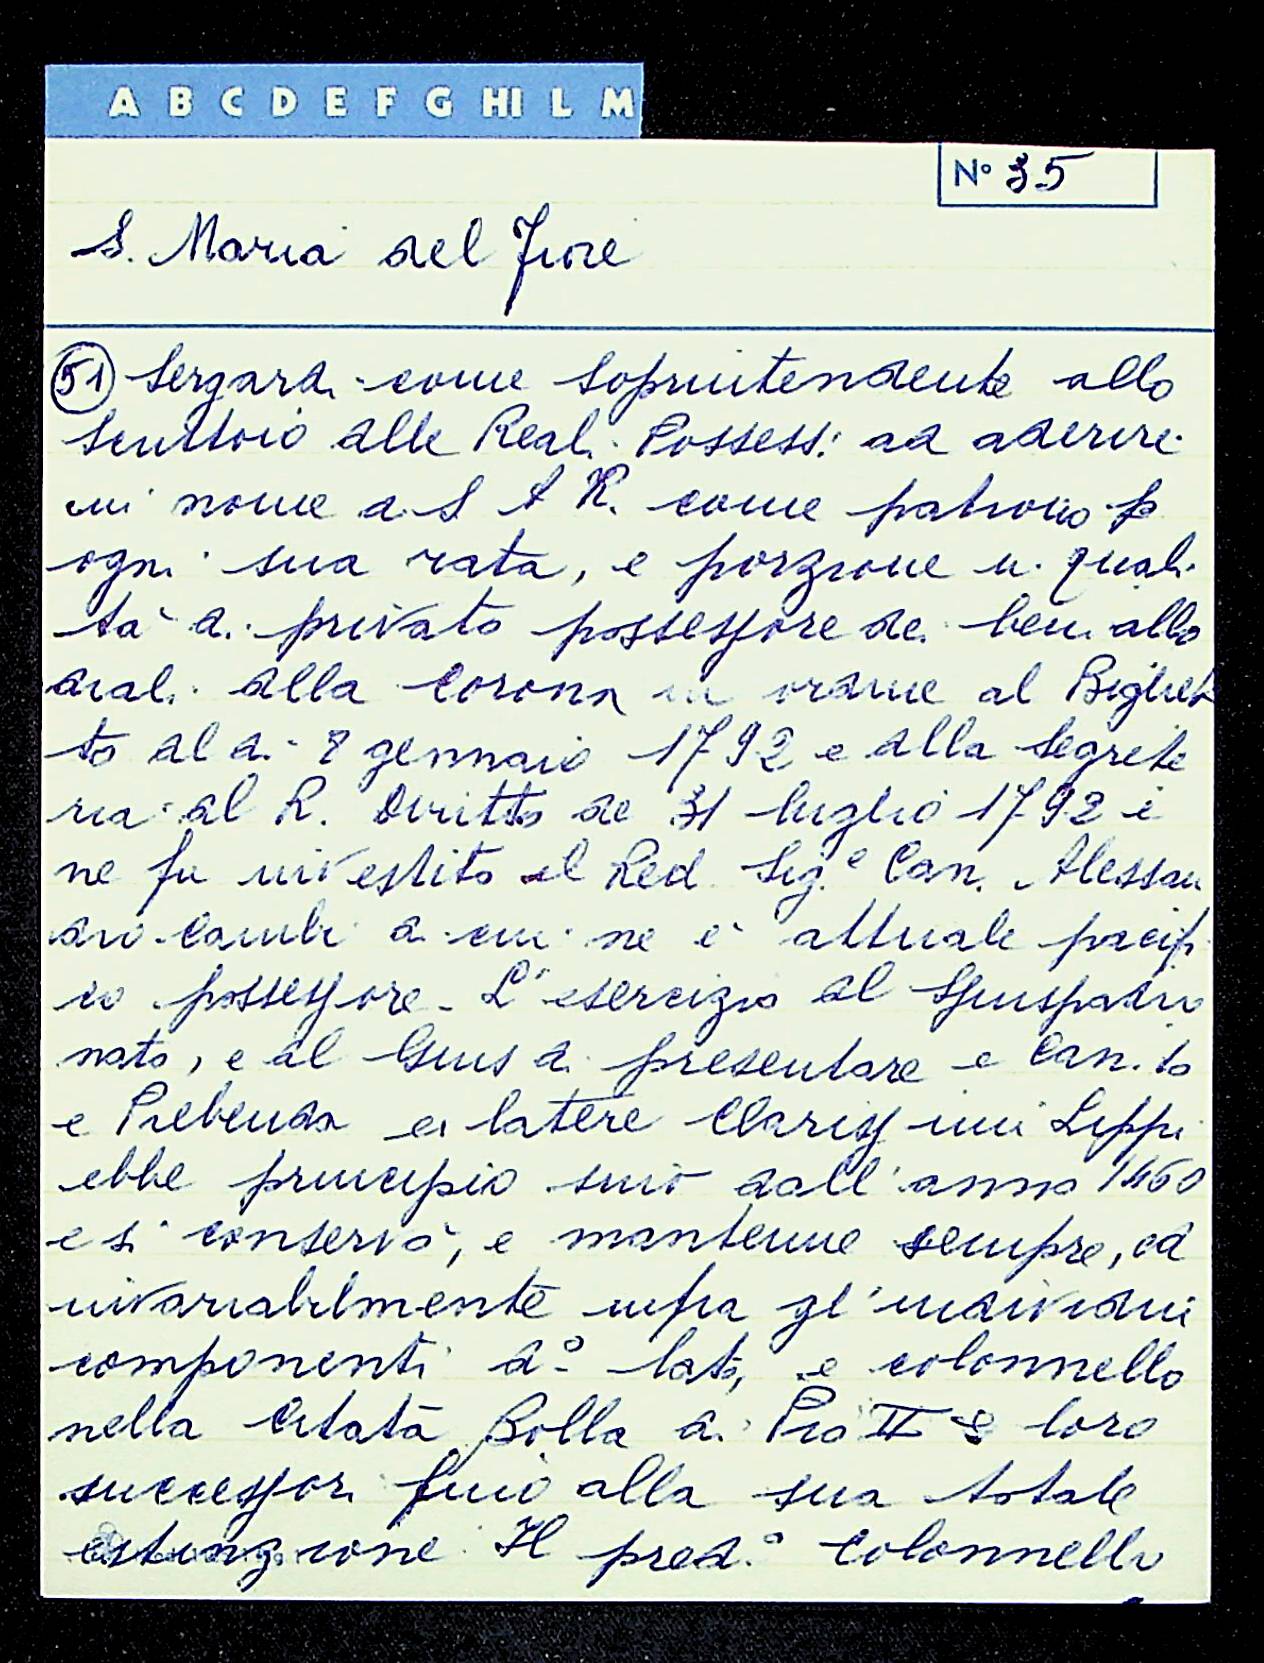 A B C D E F G HI L M
N° 35
S. Maria del Fiore
51 Sergardi come Soprintendente allo
Scrittoio delle Reali Possess: ad aderire
in nome di S A R. come patrono p
ogni sua rata, e porzione in quali
tà di privato possessore dei beni allo
diali della Corona in ordine al Bigliet
to del dì 8 gennaio 1792 e della Segrete
ria del R. Diritto de 31 luglio 1792 e
ne fu investito il Red. Sig.e Can. Alessan
dro Cambi di cui ne è attuale pacifi
co possessore. L'esercizio del Juspatro
nato, e del Gius di presentare e Can.to
e Prebenda ex latere Clarissimi Lippi
ebbe principio sino dall'anno 1460
e si conservò, e mantenne sempre, ed
invariabilmente infra gl'individui
componenti d.o lato, e colonnello
nella citata Bolla di Pio II e loro
successori fino alla sua totale
estinzione. Il pred.o Colonnello